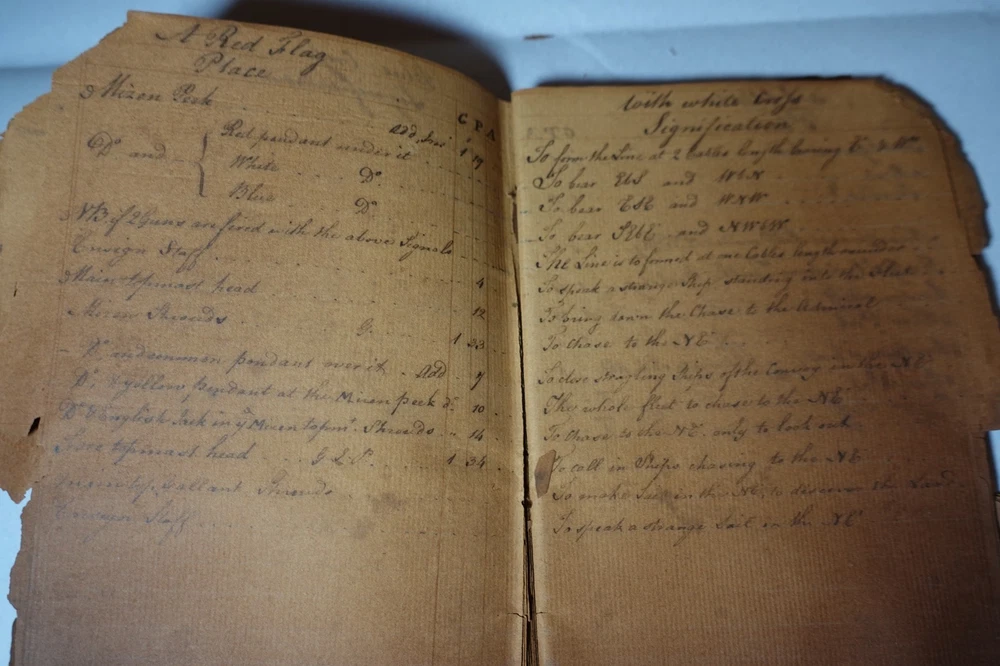 A Red Flag
Place
G P A
Mizen Peek
Add. Ins. 1 19
Do. and
Red pendant under it
White Do.
Blue Do.
NB if 2 Guns are fired with the above Signals
Ensign Staff 4
Main topmast head 12
Mizen Shrouds G. 1 23
Do. and common pendant over it Add 9
Do. & yellow pendant at the Mizen peek Do. 10
Do. & English Jack in ye Mizen topmt. Shrouds 14
Fore topmast head 1 34
Gallant Shrouds
Staff
With white Cross
Signification
To form the Line at 2 Cables length bearing E & W
To bear EbS and WbN
To bear ESE and WNW
To bear SEbE and NWbW
The Line is to formed at one Cables length asunder
To speak a strange Ship standing into the Fleet
To bring down the Chase to the Admiral
To chase to the NE
To chase stragling Ships of the Enemy in the NE
The whole fleet to chase to the NE
To chase to the NE. only to look out
To call in Ships chasing to the NE
To make Sail in the NE, to discover the Land
To speak a strange Sail in the NE